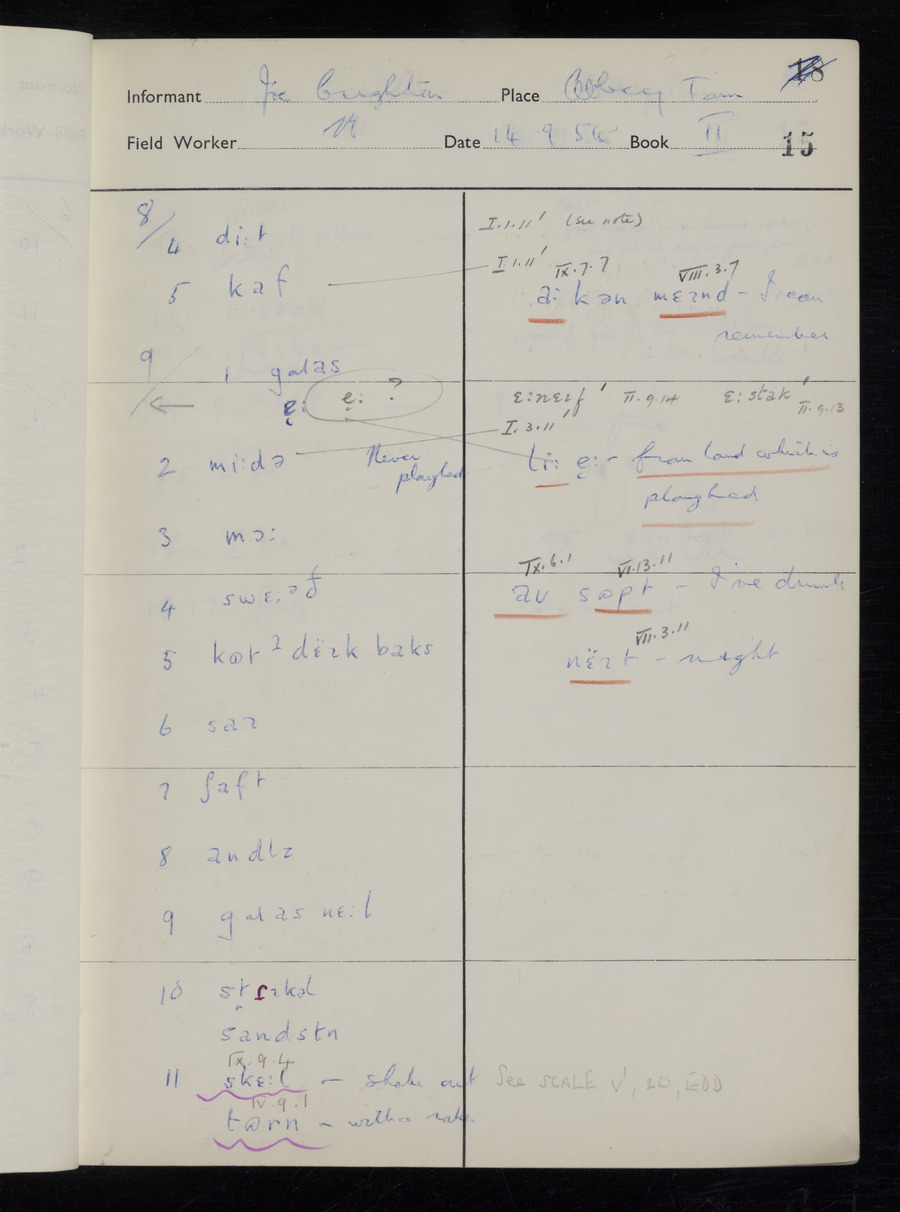 18
Informant Joe Place Abbey Town
Field Worker Date 14 9 56 Book II 15
8/
4 di:t
I.1.11' (see note)
5 kaf
I 1.11' IX.7.7 VIII.3.7
a: kən mɛɪnd - I can
remember
9
1 galəs
← ę: ę: ?
ɛ:nɛɪf ' II.9.14 ɛ:stak' II.9.13
I.3.11'
2 mi:də Never
ploughed
ę: - from land which is
ploughed
3 mɔ:
IX.6.1 VI.13.11
4 swɛ:əð
av sɷpt - I've drunk
5 kɷt ² dɛɪk baks
VII.3.11
nɛ̈ɪt - night
6 saɪ
7 ʃaft
8 andlz
9 galəs nɛ:l
10
sandstn
IX.9.4
11 skɛ:l - shake out See SCALE v', 20, EDD
IV.9.1
tɷrn - with a rake.